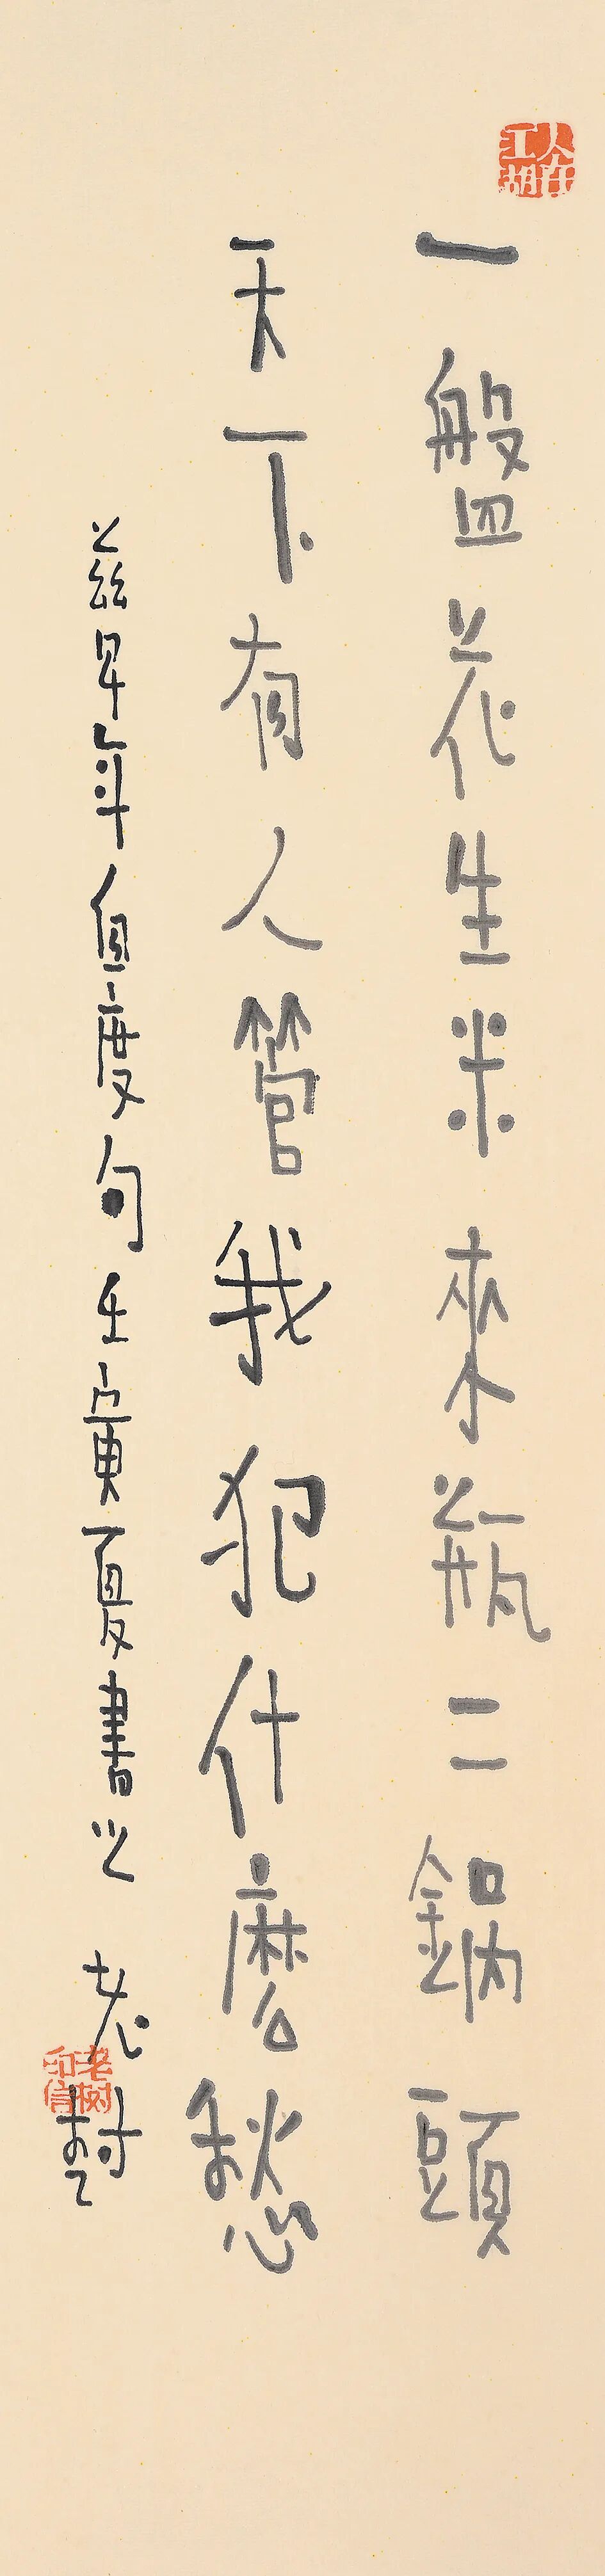 人在江湖
一盤花生米來瓶二鍋頭
天下有人管我犯什麼愁
茲早年自度句壬寅夏書之 老樹
老树印信